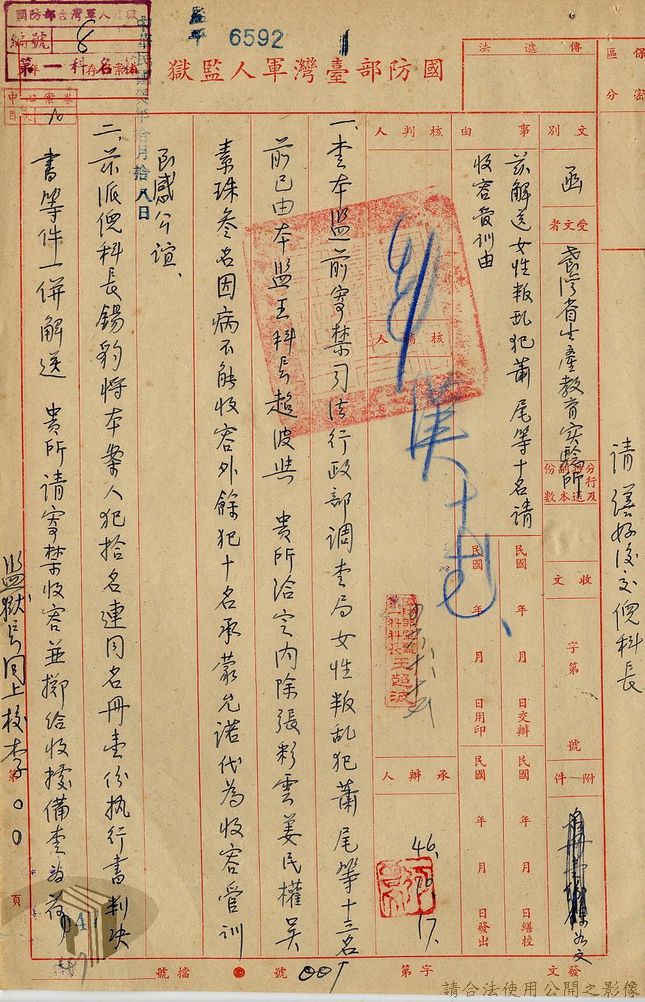 國防部臺灣軍人監獄
6592
國防部台灣軍人監獄
編號 8
第一科存名
中華民國
拾月拾八日
保密區分
傳遞法
請繕好後交倪科長
文別
函
受文者
臺灣省生產教育實驗所
分行及副本抄送份數
收文
字第
號
附件
如文
發文
事由
茲解送女性叛乱犯蕭尾等十名請
收容管訓由
核判人
核稿人
民國 年 月 日交辦
民國 年 月 日繕校
民國 年 月 日用印
民國 年 月 日發出
承辦人
46.10.17.
第一科科長王超波
一、查本監前寄禁司法行政部調查局女性叛乱犯蕭尾等十三名
前已由本監王科長超波與 貴所洽定內除張彩雲姜民權吳
素珠叁名因病不能收容外餘犯十名承蒙允諾代為收容管訓
至感公誼、
二、茲派倪科長錫豹將本案人犯拾名連同名冊壹份執行書判决
書等件一併解送 貴所請寄禁收容並擲給收據備查為荷
監獄長同上校李○○
第
頁
字第
號
檔號
041
請合法使用公開之影像